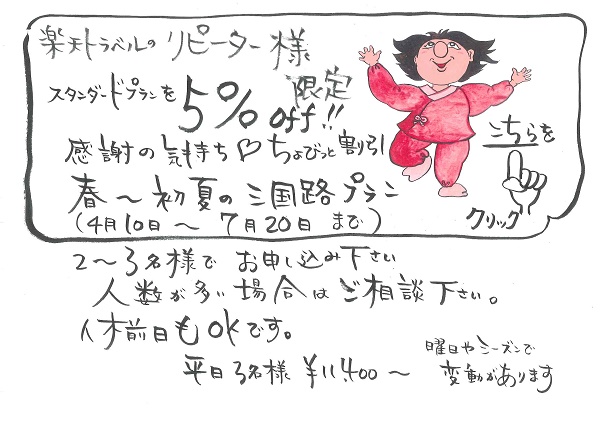 楽天トラベルの リピーター様
限定
スタンダードプランを 5% off!!
感謝の気持ち♡ちょびっと割引
春～初夏の三国路プラン
(4月10日～7月20日まで)
こちらを
クリック
2～3名様で お申し込み下さい
人数が多い場合はご相談下さい。
休前日もOKです。
平日3名様 ¥11,400～
曜日やシーズンで
変動があります